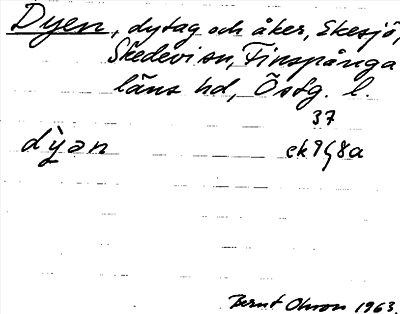 Dyen, dytag och åker, Ekesjö,
Skedevi sn, Finspånga
läns hd, Östg. l.
37
dỳən ek 9G8a
Bernt Olsson 1963.